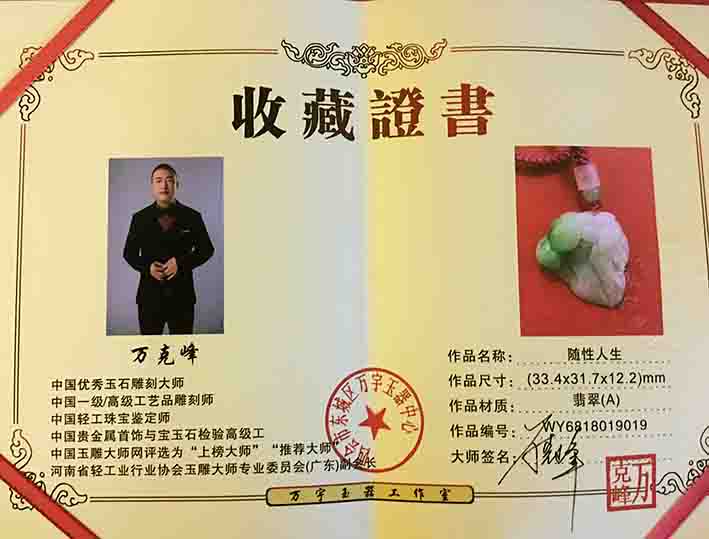 收藏證書
万克峰
中国优秀玉石雕刻大师
中国一级/高级工艺品雕刻师
中国轻工珠宝鉴定师
中国贵金属首饰与宝玉石检验高级工
中国玉雕大师网评选为“上榜大师”“推荐大师”
河南省轻工业行业协会玉雕大师专业委员会(广东)副会长
作品名称: 随性人生
作品尺寸: (33.4x31.7x12.2)mm
作品材质: 翡翠(A)
作品编号: WY6818019019
大师签名:
四会市东城区万宇玉器中心
万克峰
万宇玉器工作室